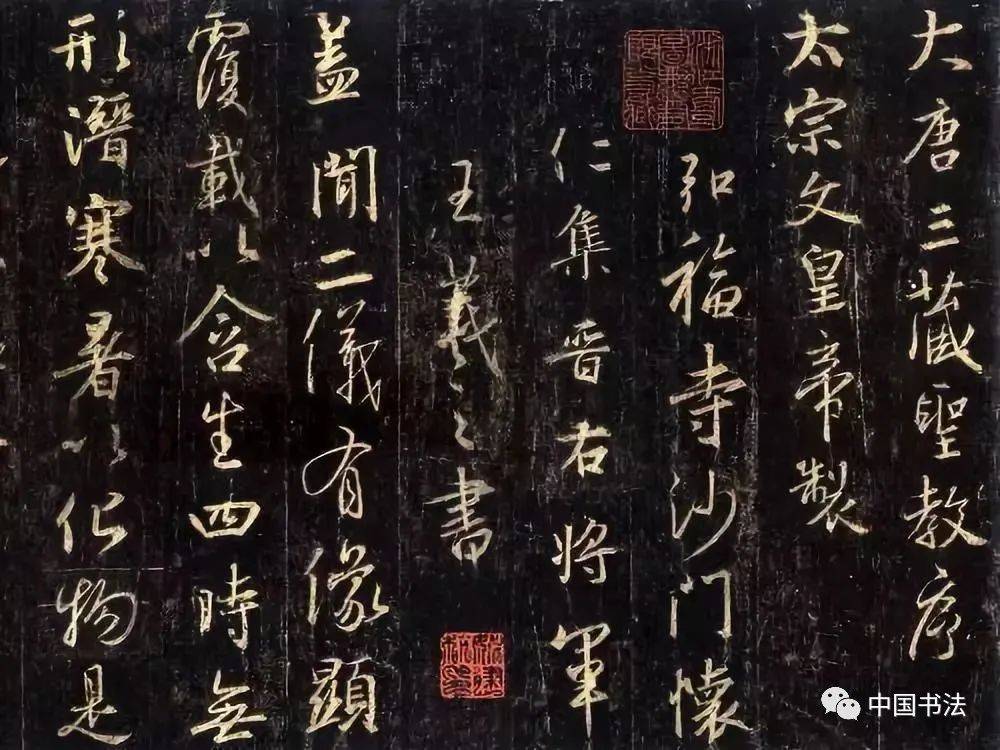 大唐三藏聖教序
太宗文皇帝製
弘福寺沙门懷
仁集晋右将軍
王羲之書
盖聞二儀有像顯
覆載以含生四時無
形潛寒暑以化物是
中国书法